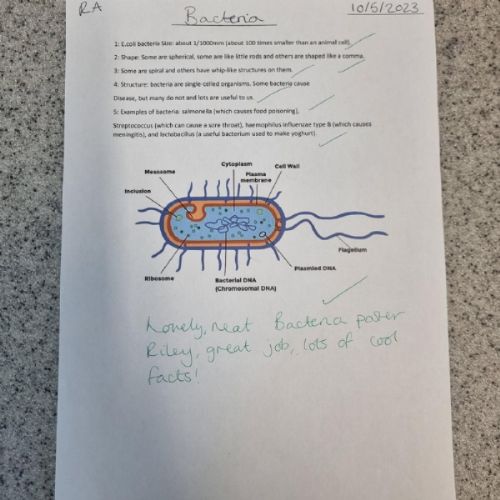 RA
Bacteria
10/5/2023
1: E.coli bacteria Size: about 1/1000mm (about 100 times smaller than an animal cell).
2: Shape: Some are spherical, some are like little rods and others are shaped like a comma.
3: Some are spiral and others have whip-like structures on them.
4: Structure: bacteria are single-celled organisms. Some bacteria cause
Disease, but many do not and lots are useful to us.
5: Examples of bacteria: salmonella (which causes food poisoning),
Streptococcus (which can cause a sore throat), haemophilus influenzae type B (which causes
meningitis), and lactobacillus (a useful bacterium used to make yoghurt).
Cytoplasm
Mesosome
Plasma
membrane
Cell Wall
Inclusion
Flagellum
Ribosome
Bacterial DNA
(Chromosomal DNA)
Plasmied DNA
Lovely, neat Bacteria poster
Riley, great job, lots of cool
facts!